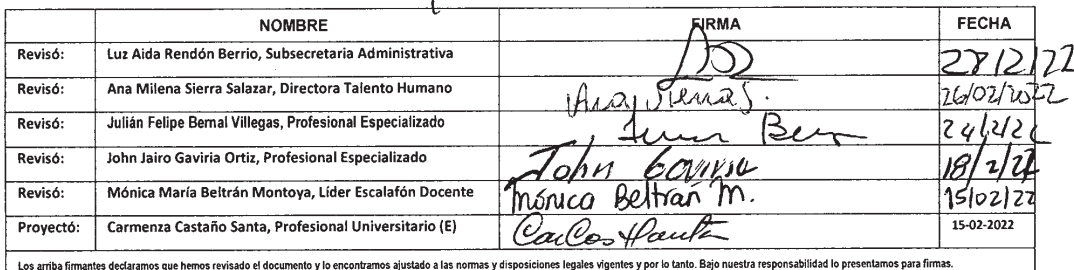 NOMBRE FIRMA FECHA
Revisó: Luz Aida Rendón Berrio, Subsecretaria Administrativa
Revisó: Ana Milena Sierra Salazar, Directora Talento Humano Ana Sierra S. 26/02/2022
Revisó: Julián Felipe Bernal Villegas, Profesional Especializado
Revisó: John Jairo Gaviria Ortiz, Profesional Especializado John Gaviria 18/2/22
Revisó: Mónica María Beltrán Montoya, Líder Escalafón Docente Mónica Beltrán M. 15/02/22
Proyectó: Carmenza Castaño Santa, Profesional Universitario (E) 15-02-2022
Los arriba firmantes declaramos que hemos revisado el documento y lo encontramos ajustado a las normas y disposiciones legales vigentes y por lo tanto. Bajo nuestra responsabilidad lo presentamos para firmas.